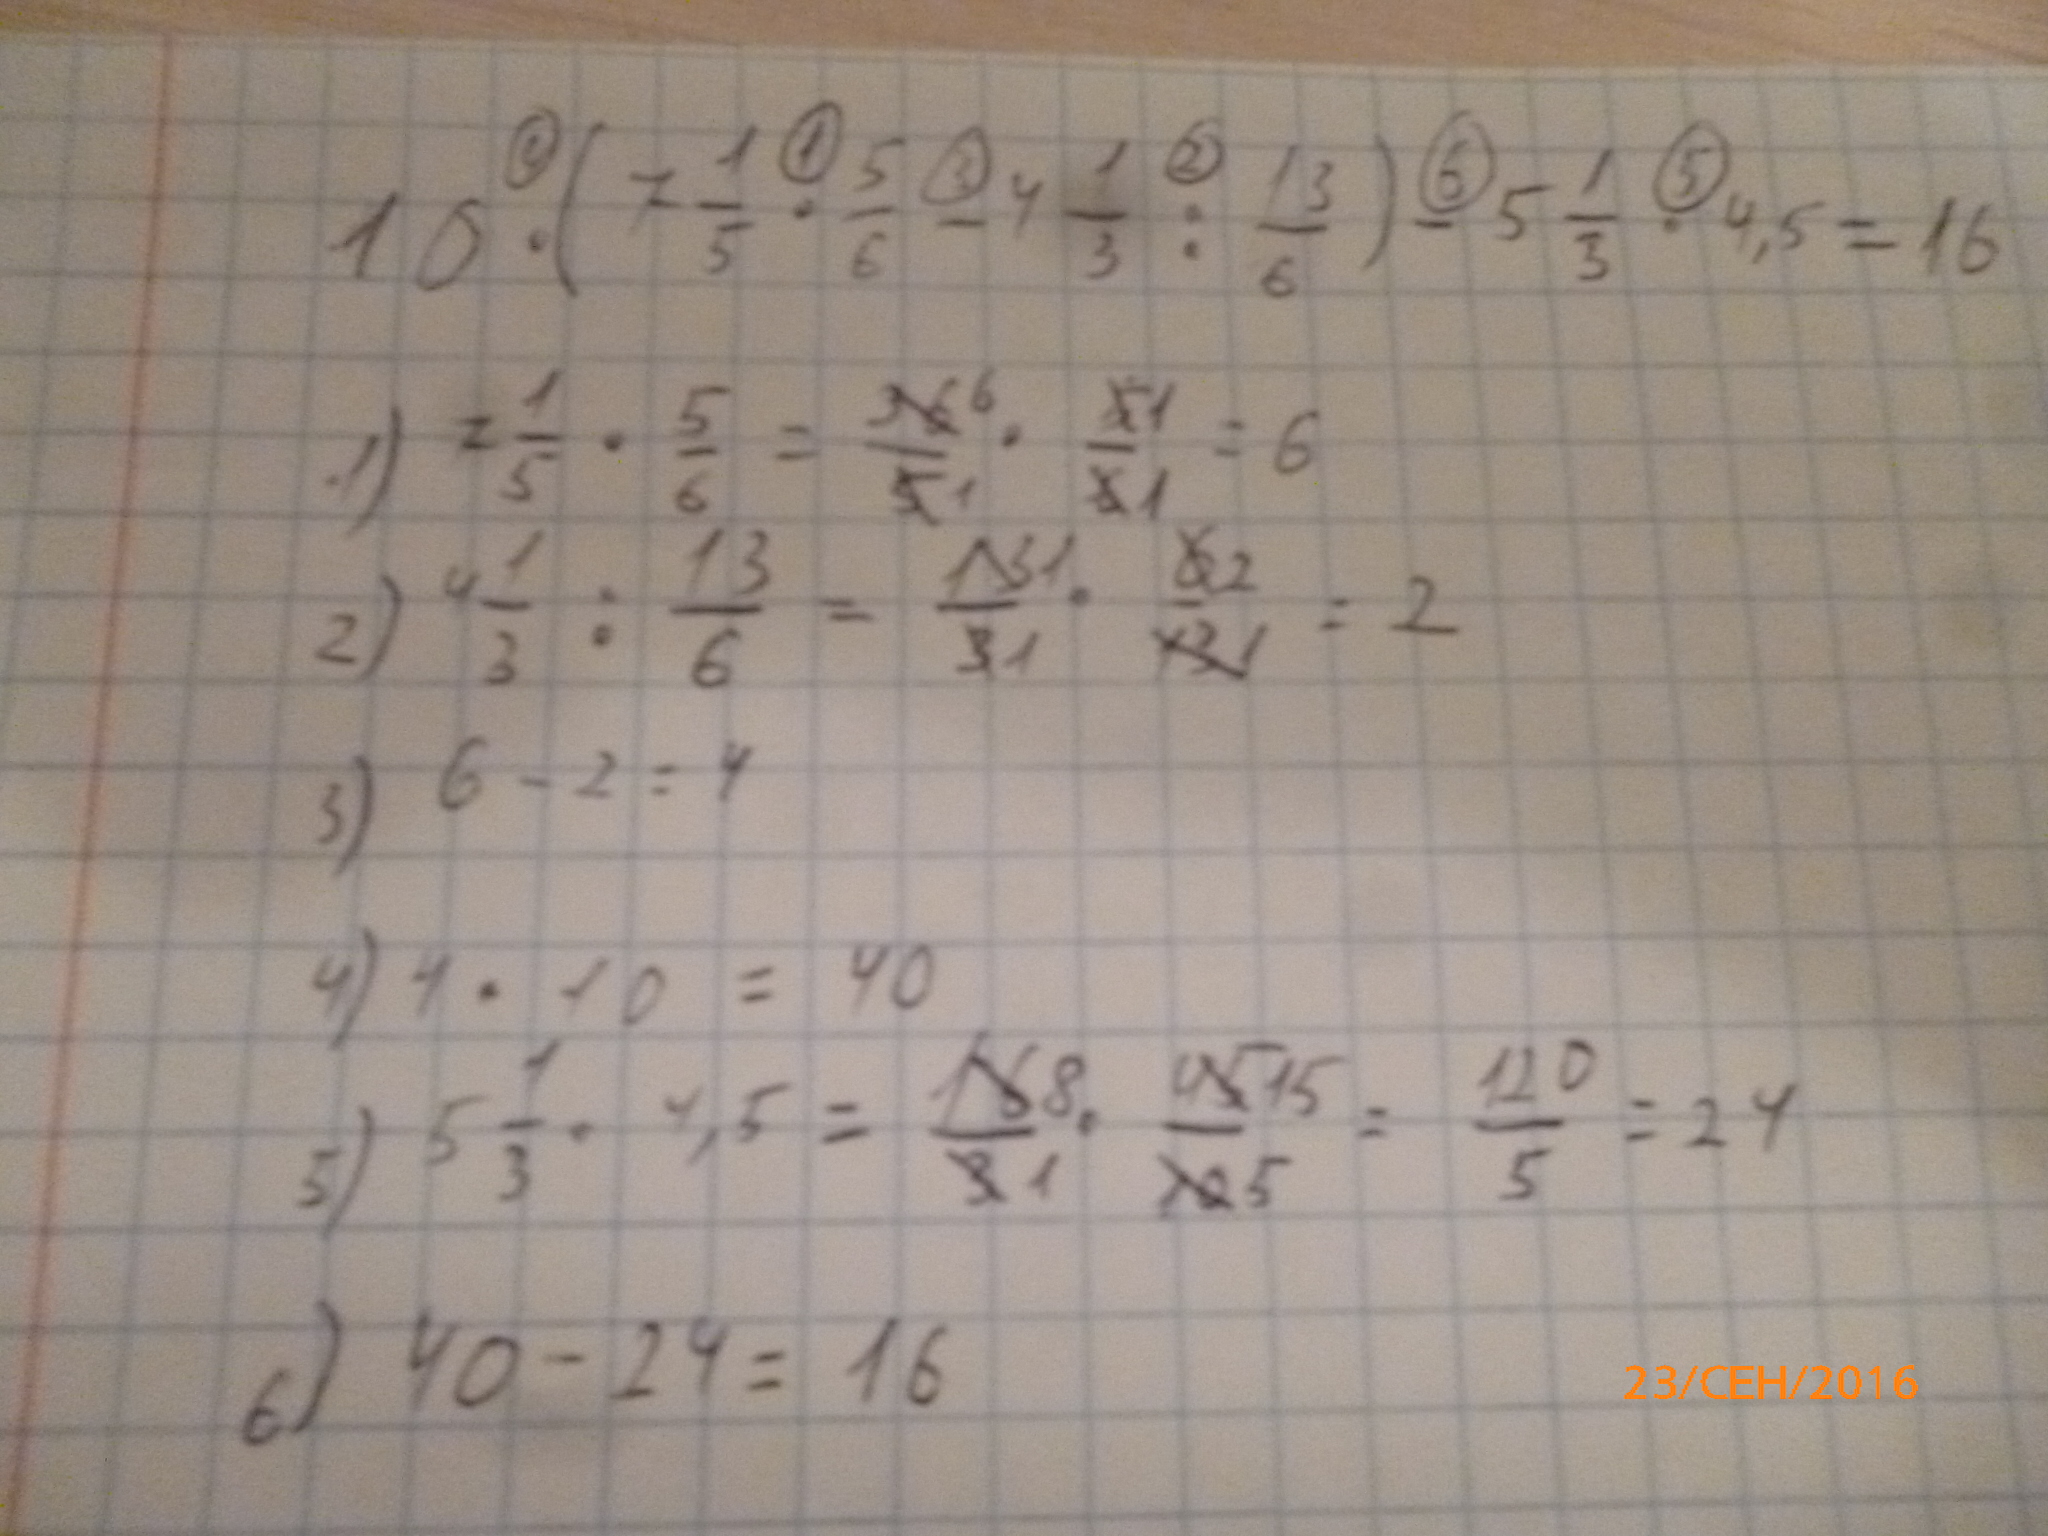 10 · (7 1/5 · 5/6 - 4 1/3 : 13/6) - 5 1/3 · 4,5 = 16
1) 7 1/5 · 5/6 = 36 6/5 1 · 5 1/5 1 = 6
2) 4 1/3 : 13/6 = 13 1/3 1 · 6 2/13 1 = 2
3) 6 - 2 = 4
4) 4 · 10 = 40
5) 5 1/3 · 4,5 = 16 8/3 1 · 45 15/10 5 = 120/5 = 24
6) 40 - 24 = 16
23/СЕН/2016